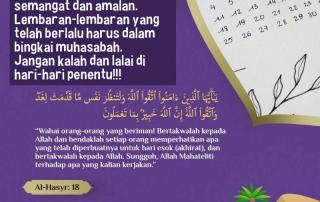 semangat dan amalan.
Lembaran-lembaran yang
telah berlalu harus dalam
bingkai muhasabah.
Jangan kalah dan lalai di
hari-hari penentu!!!
4 5 6 7
11 12 13 14
18 19 20 21
25 26 27 28
يَٰٓأَيُّهَا ٱلَّذِينَ ءَامَنُوا۟ ٱتَّقُوا۟ ٱللَّهَ وَلْتَنظُرْ نَفْسٌ مَّا قَدَّمَتْ لِغَدٍ ۖ
وَٱتَّقُوا۟ ٱللَّهَ ۚ إِنَّ ٱللَّهَ خَبِيرٌۢ بِمَا تَعْمَلُونَ
"Wahai orang-orang yang beriman! Bertakwalah kepada
Allah dan hendaklah setiap orang memperhatikan apa
yang telah diperbuatnya untuk hari esok (akhirat), dan
bertakwalah kepada Allah. Sungguh, Allah Mahateliti
terhadap apa yang kalian kerjakan."
Al-Hasyr: 18